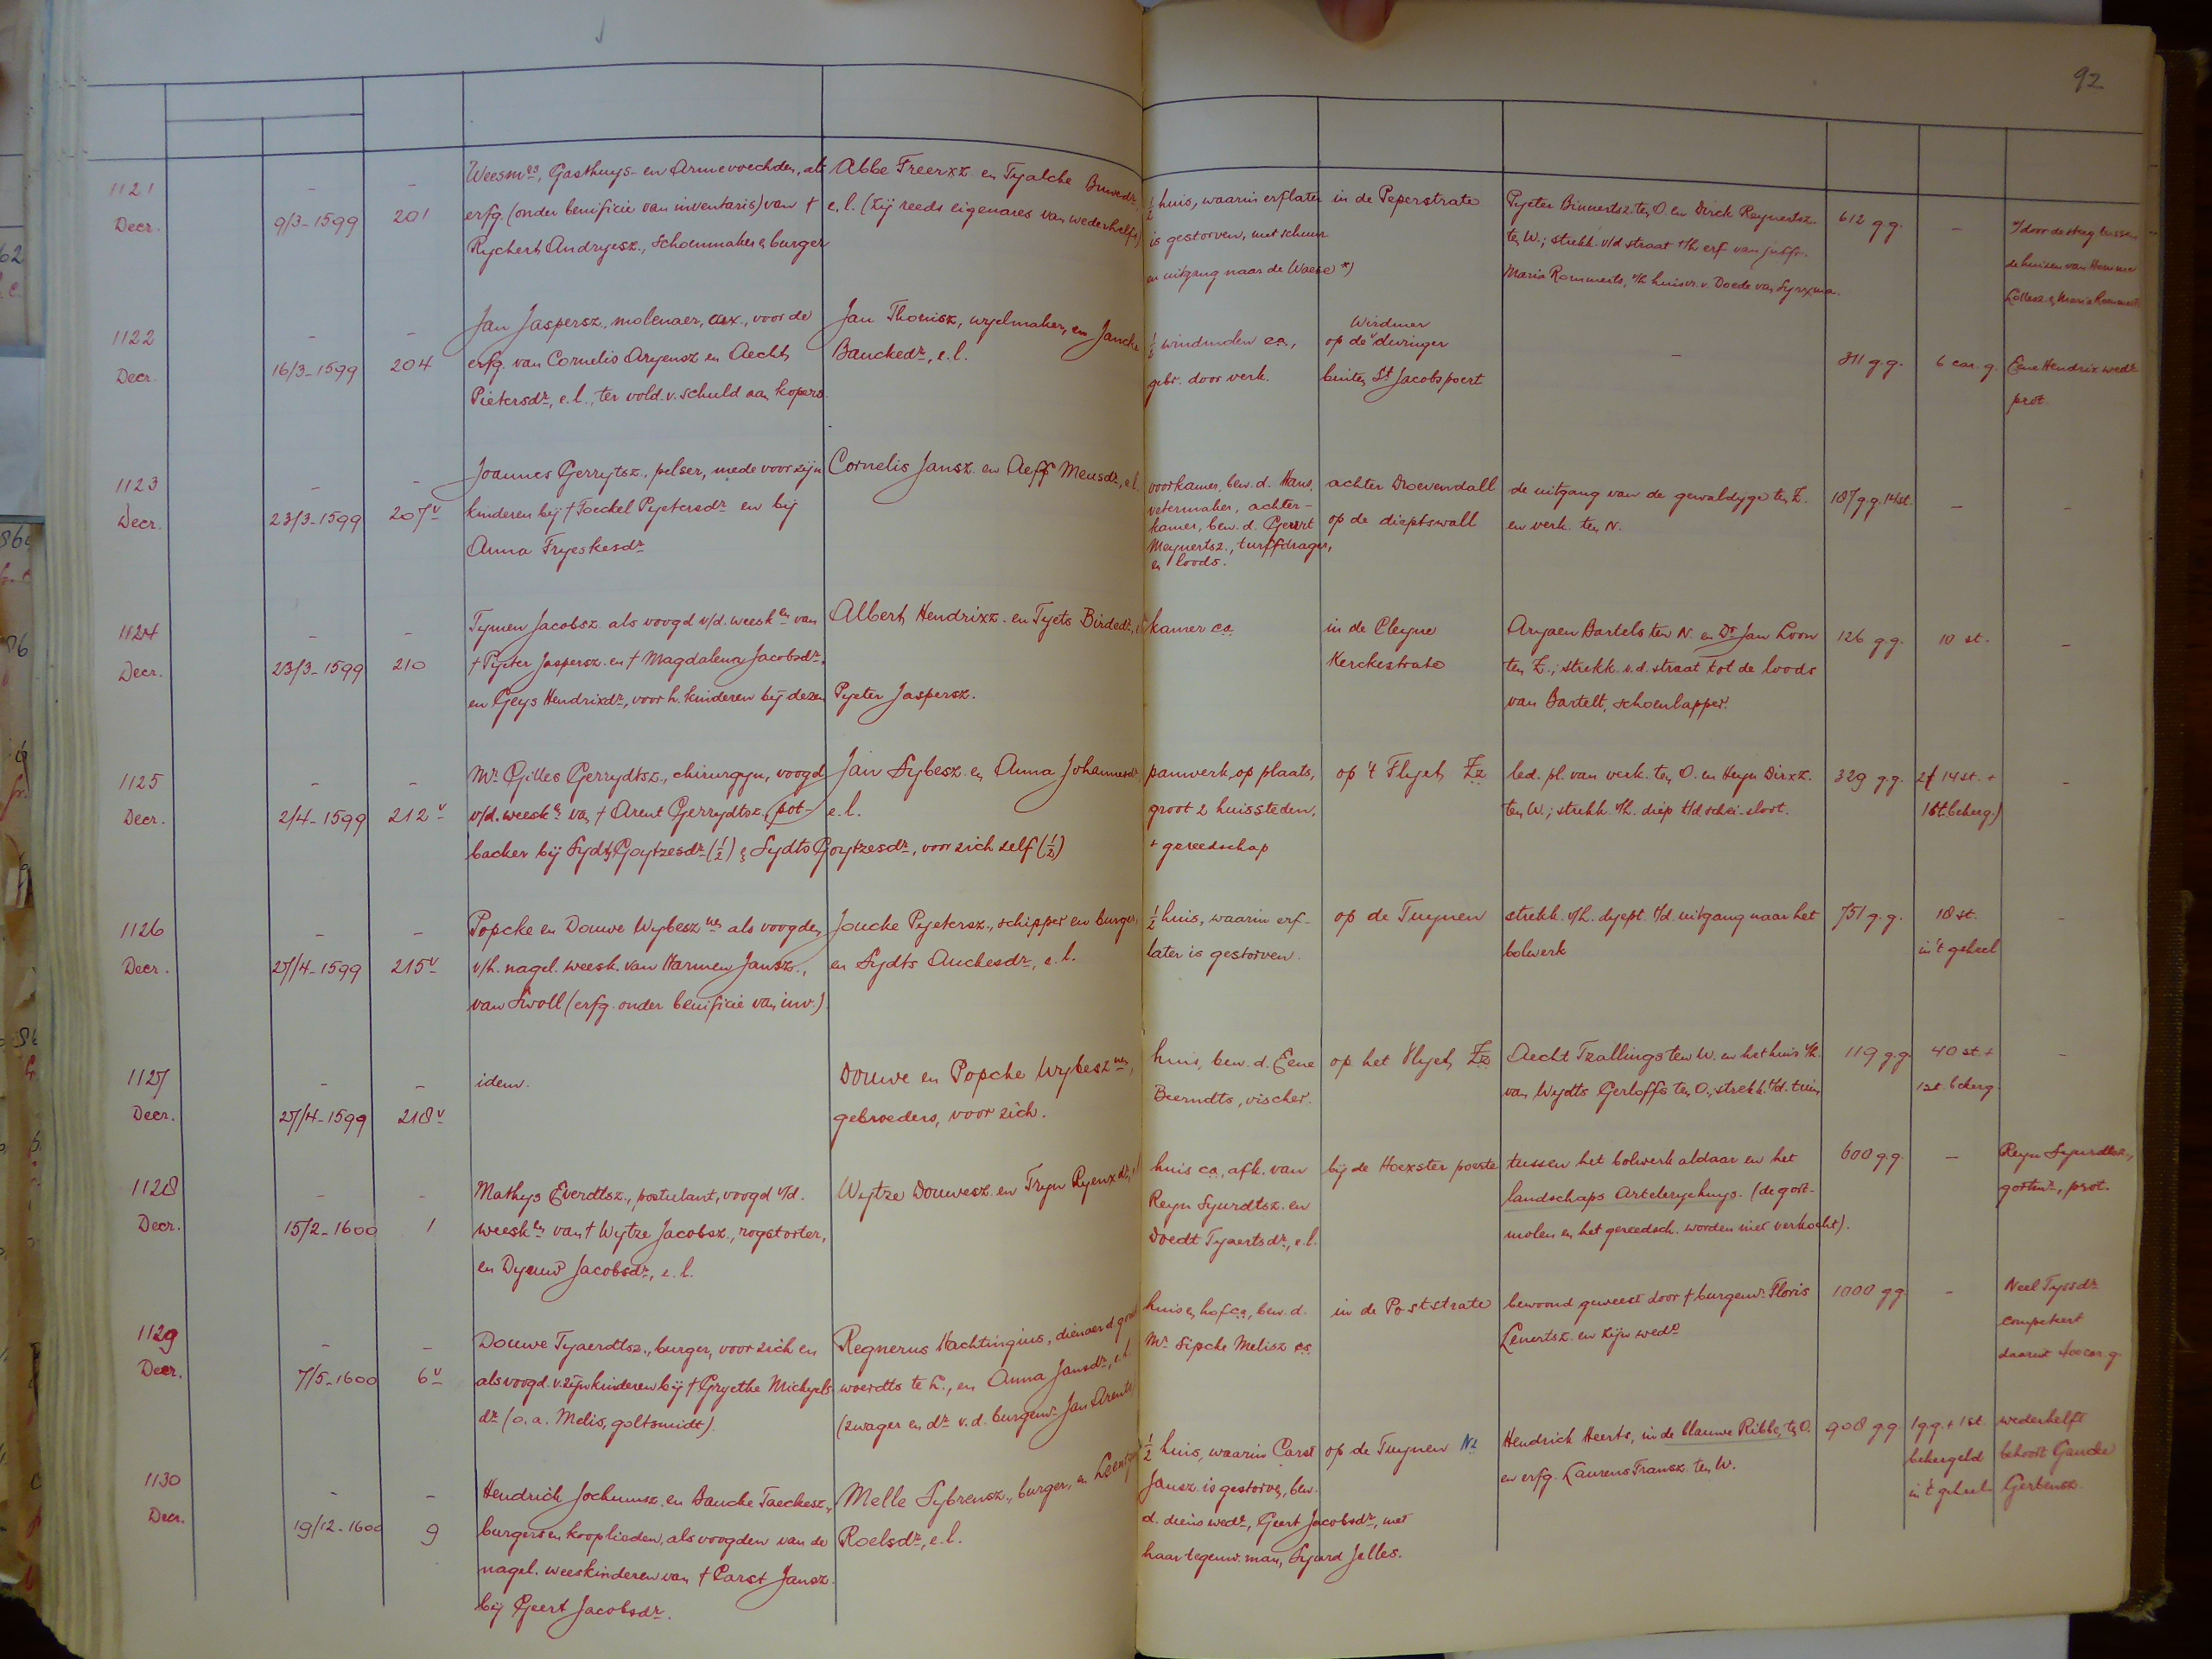 92
1121
Decr.
9/3-1599
201
Weesmrs, Gasthuys- en Armevoechden, als
erfg. (onder benificie van inventaris) van †
Rychert Andryesz., schoenmaker & burger
Abbe Freerxz. en Tyalcke Buwedr.
e.l. (Zij reeds eigenares van wederhelft)
½ huis, waarin erflater
is gestorven, met schuur
en uitgang naar de Waeze *)
in de Peperstrate
Pyeter Binnertsz. ten O. en Dirck Reynertsz.
ten W.; strekk. v/d straat t/h erf van juffr.
Maria Rommerts, t/h huisvr. v. Doede van Syrxma.
612 g.g.
-
*/ door de steg tussen
de huizen van Homme
Lollesz. & Maria Rommerts
1122
Decr.
16/3-1599
204
Jan Jaspersz., molenaer, cux., voor de
erfg. van Cornelis Aryensz en Aecht
Pietersdr., e.l., ter vold. v. schuld aan kopers.
Jan Thonisz, wyelmaker, en Jancke
Bauckedr., e.l.
½ windmolen ca.,
gebr. door verk.
Wirdumer
op de duringer
buiten St Jacobspoert
-
811 g.g.
6 car. g.
Eene Hendrix wedr.
prot.
1123
Decr.
23/3-1599
207v
Joannes Gerrytsz., pelser, mede voor zijn
kinderen bij † Foeckel Pyetersdr. en bij
Anna Fryeskesdr.
Cornelis Jansz. en Aeff Meusdr., e.l.
voorkamer, bew. d. Hans,
vetermaker, achter-
kamer, bew. d. Geert
Meynertsz., turffdrager,
en loods.
achter Droevendall
op de dieptswall
de uitgang van de gewaldyge ten Z.
en verk. ten N.
187 g.g. 14 st.
-
-
1124
Decr.
23/3-1599
210
Tymen Jacobsz. als voogd v/d. weeskn. van
† Pyeter Jaspersz. en † Magdalena Jacobsdr.
en Geys Hendrixdr., voor h. kinderen bij dezen
Albert Hendrixz. en Tyets Birdedr., e.l.
Pyeter Jaspersz.
kamer ca.
in de Cleyne
Kerckestrate
Aryaen Bartels ten N. en Dr. Jan Loon
ten Z.; strekk. v.d. straat tot de loods
van Bartelt, schoenlapper.
126 g.g.
10 st.
-
1125
Decr.
2/4-1599
212v
Mr. Gilles Gerrydtsz., chirurgyn, voogd
v/d. weeskn. van † Arent Gerrydtsz., pot-
backer bij Sydts Goytzesdr. (½) & Sydts Goytzesdr., voor zich zelf (½)
Jan Sybesz. en Anna Johannesdr.
e.l.
panwerk, op plaats,
groot 2 huissteden,
+ gereedschap
op 't Flyet Zz
led. pl. van verk. ten O. en Heyn Dirxz.
ten W.; strekk. v/h. diep t/d schei-sloot.
329 g.g.
2f 14 st. +
1 st. bekerg.)
-
1126
Decr.
27/4-1599
215v
Popcke en Douwe Wybesz. als voogden
v/h. nagel. weesk. van Harmen Jansz.,
van Swoll (erfg. onder benificie van inv.)
Joucke Pyetersz., schipper en burger,
en Sydts Auckesdr., e.l.
½ huis, waarin erf-
later is gestorven.
op de Tuynen
strekk. v/h. dyept. t/d. uitgang naar het
bolwerk
751 g.g.
18 st.
in 't geheel
-
1127
Decr.
27/4-1599
218v
idem.
Douwe en Popcke Wybesz.,
gebroeders, voor zich.
huis, bew. d. Eene
Beerndts, vischer.
op het Vlyet Zz
Aecht Tzallings ten W. en het huis t/h.
van Wydts Gerloffs ten O., strekk. t/d. tuin
119 g.g.
40 st. +
1 st. bekerg.
-
1128
Decr.
15/2-1600
1
Mathys Everdtsz., postulant, voogd v/d.
weeskn. van † Wytze Jacobsz., rogstorter,
en Dyeuw Jacobsdr., e.l.
Wytze Douwesz. en Tryn Ryenxdr., e.l.
huis ca., afk. van
Reyn Syurdtsz. en
Doedt Tyaertsdr., e.l.
bij de Hoexster poorte
tussen het bolwerk aldaar en het
landschaps Artelerychuys. (de gort-
molen en het gereedsch. worden niet verkocht).
600 g.g.
-
Reyn Syurdtsz.,
gortmr., prot.
1129
Decr.
7/5-1600
6v
Douwe Tyaerdtsz., burger, voor zich en
als voogd v. zijn kinderen bij † Gryethe Michyels
dr. (o.a. Melis, goltsmidt).
Regnerus Hachtingius, dienaer d. godl.
woerdts te L., en Anna Jansdr., e.l.
(zwager en dr. v.d. burgemr. Jan Arents)
huis en hof ca., bew. d.
Mr. Sipcke Melisz cs.
in de Poststrate
bewoond geweest door † burgemr. Floris
Lenertsz. en zijn wede.
1000 g.g.
-
Neel Tyssdr.
competeert
daaruit 400 car. g.
1130
Decr.
19/12-1600
9
Hendrick Jochumsz. en Baucke Taeckesz.,
burgers en kooplieden, als voogden van de
nagel. weeskinderen van † Carst Jansz.
bij Geert Jacobsdr.
Melle Sybrensz., burger, en
Roelsdr., e.l.
½ huis, waarin Carst
Jansz. is gestorven, bew.
d. diens wedr., Geert Jacobsdr., met
haar tegenw. man, Syurd Jelles.
op de Tuynen Nz
Hendrick Heerts, in de blauwe Ribbe, ten O.
en erfg. Laurens Fransz. ten W.
908 g.g.
1 g.g. + 1 st.
bekergeld
in 't geheel
wederhelft
behoort Gaucke
Gerbensz.